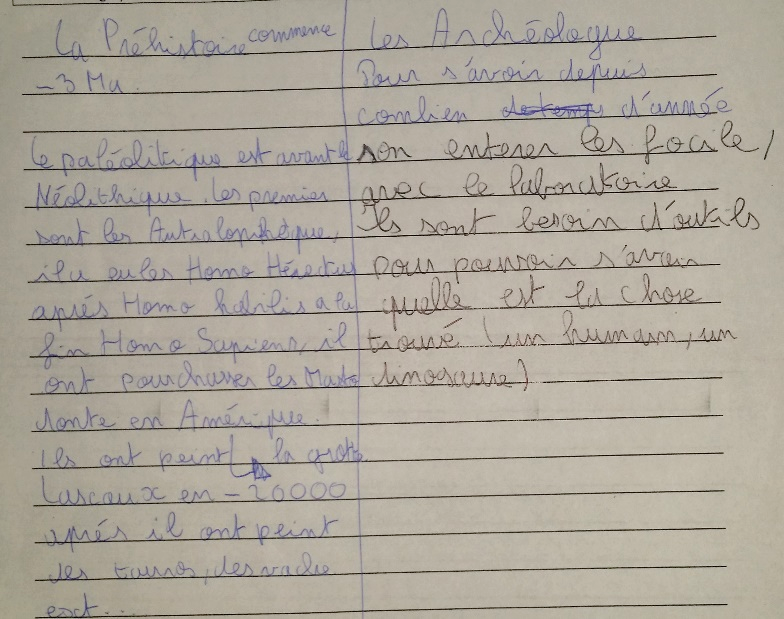 La Préhistoire commence
- 3 Ma.
Le paléolitique est avant le
Néolithique. Les premier
sont les Autralopithèque,
il a eu les Homo Hérectus
aprés Homo habilis a la
fin Homo Sapiens, il
ont pourchasser les Masto
donte en Amérique.
Ils ont peint la grotte
Lascaux en - 20000
aprés il ont peint
des tauros, des vache
ect...
Les Archéologue
Pour s'avoir depuis
combien de temps d'année
son enterer les focile,
avec le laboratoire
Ils sont besoin d'outils
pour pouvoir s'avoir
quelle est la chose
trouvé (un humain, un
dinosaure)